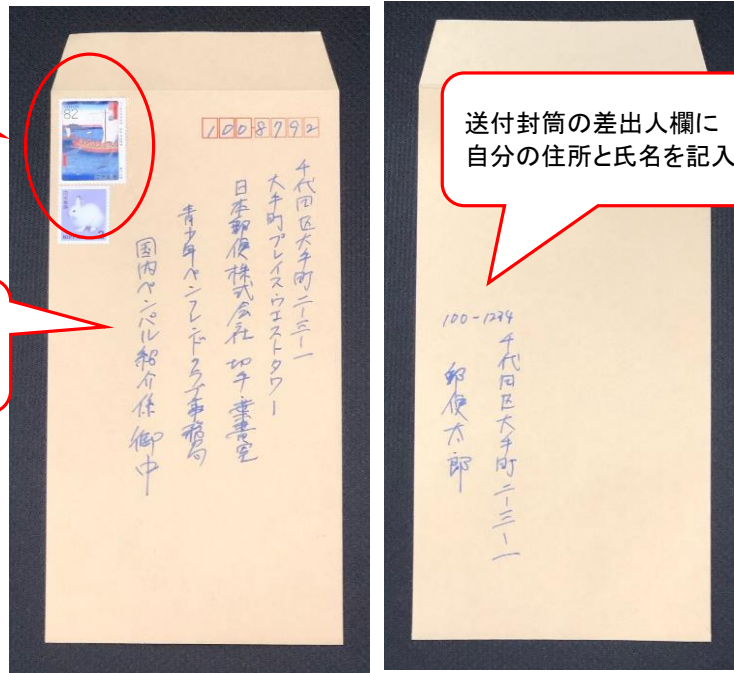 82
1008792
千代田区大手町二ー三ー一
大手町プレイスウエストタワー
日本郵便株式会社 切手・葉書室
青少年ペンフレンドクラブ事務局
国内ペンパル紹介係 御中
送付封筒の差出人欄に
自分の住所と氏名を記入
100-1234
千代田区大手町二ー三ー一
郵便太郎